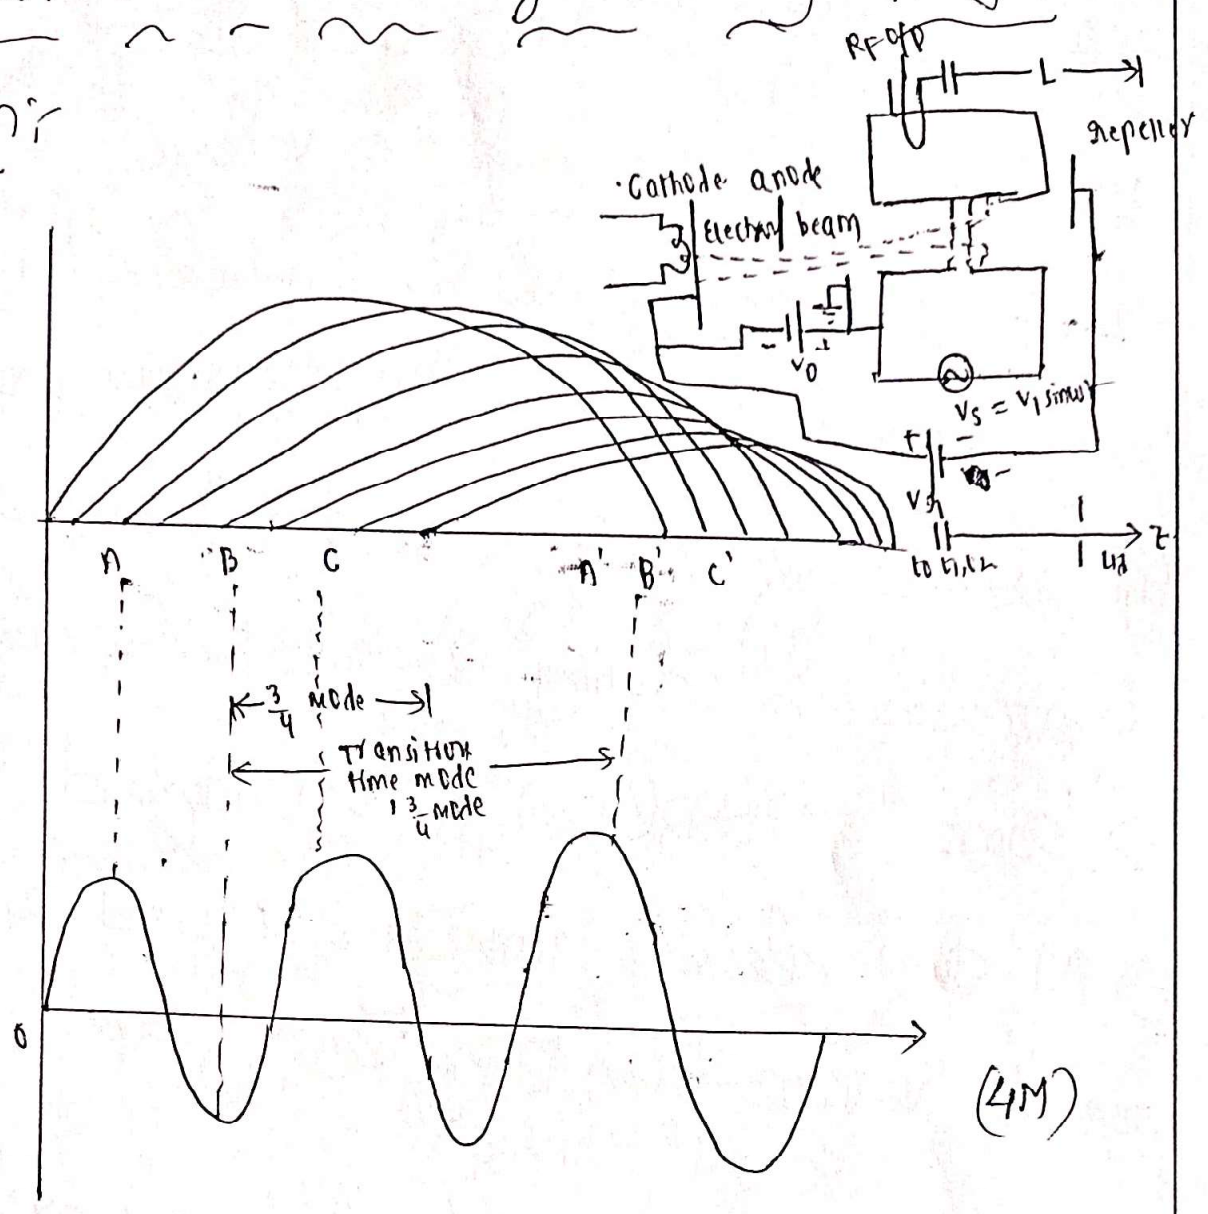 RF O/P
L
repeller
Cathode anode
Electron beam
- V0 +
Vs = V1 sinωt
+ -
A B C A' B' C'
t0 t1, t2
z
3/4 mode
Transition
time mode
1 3/4 mode
0
(4M)